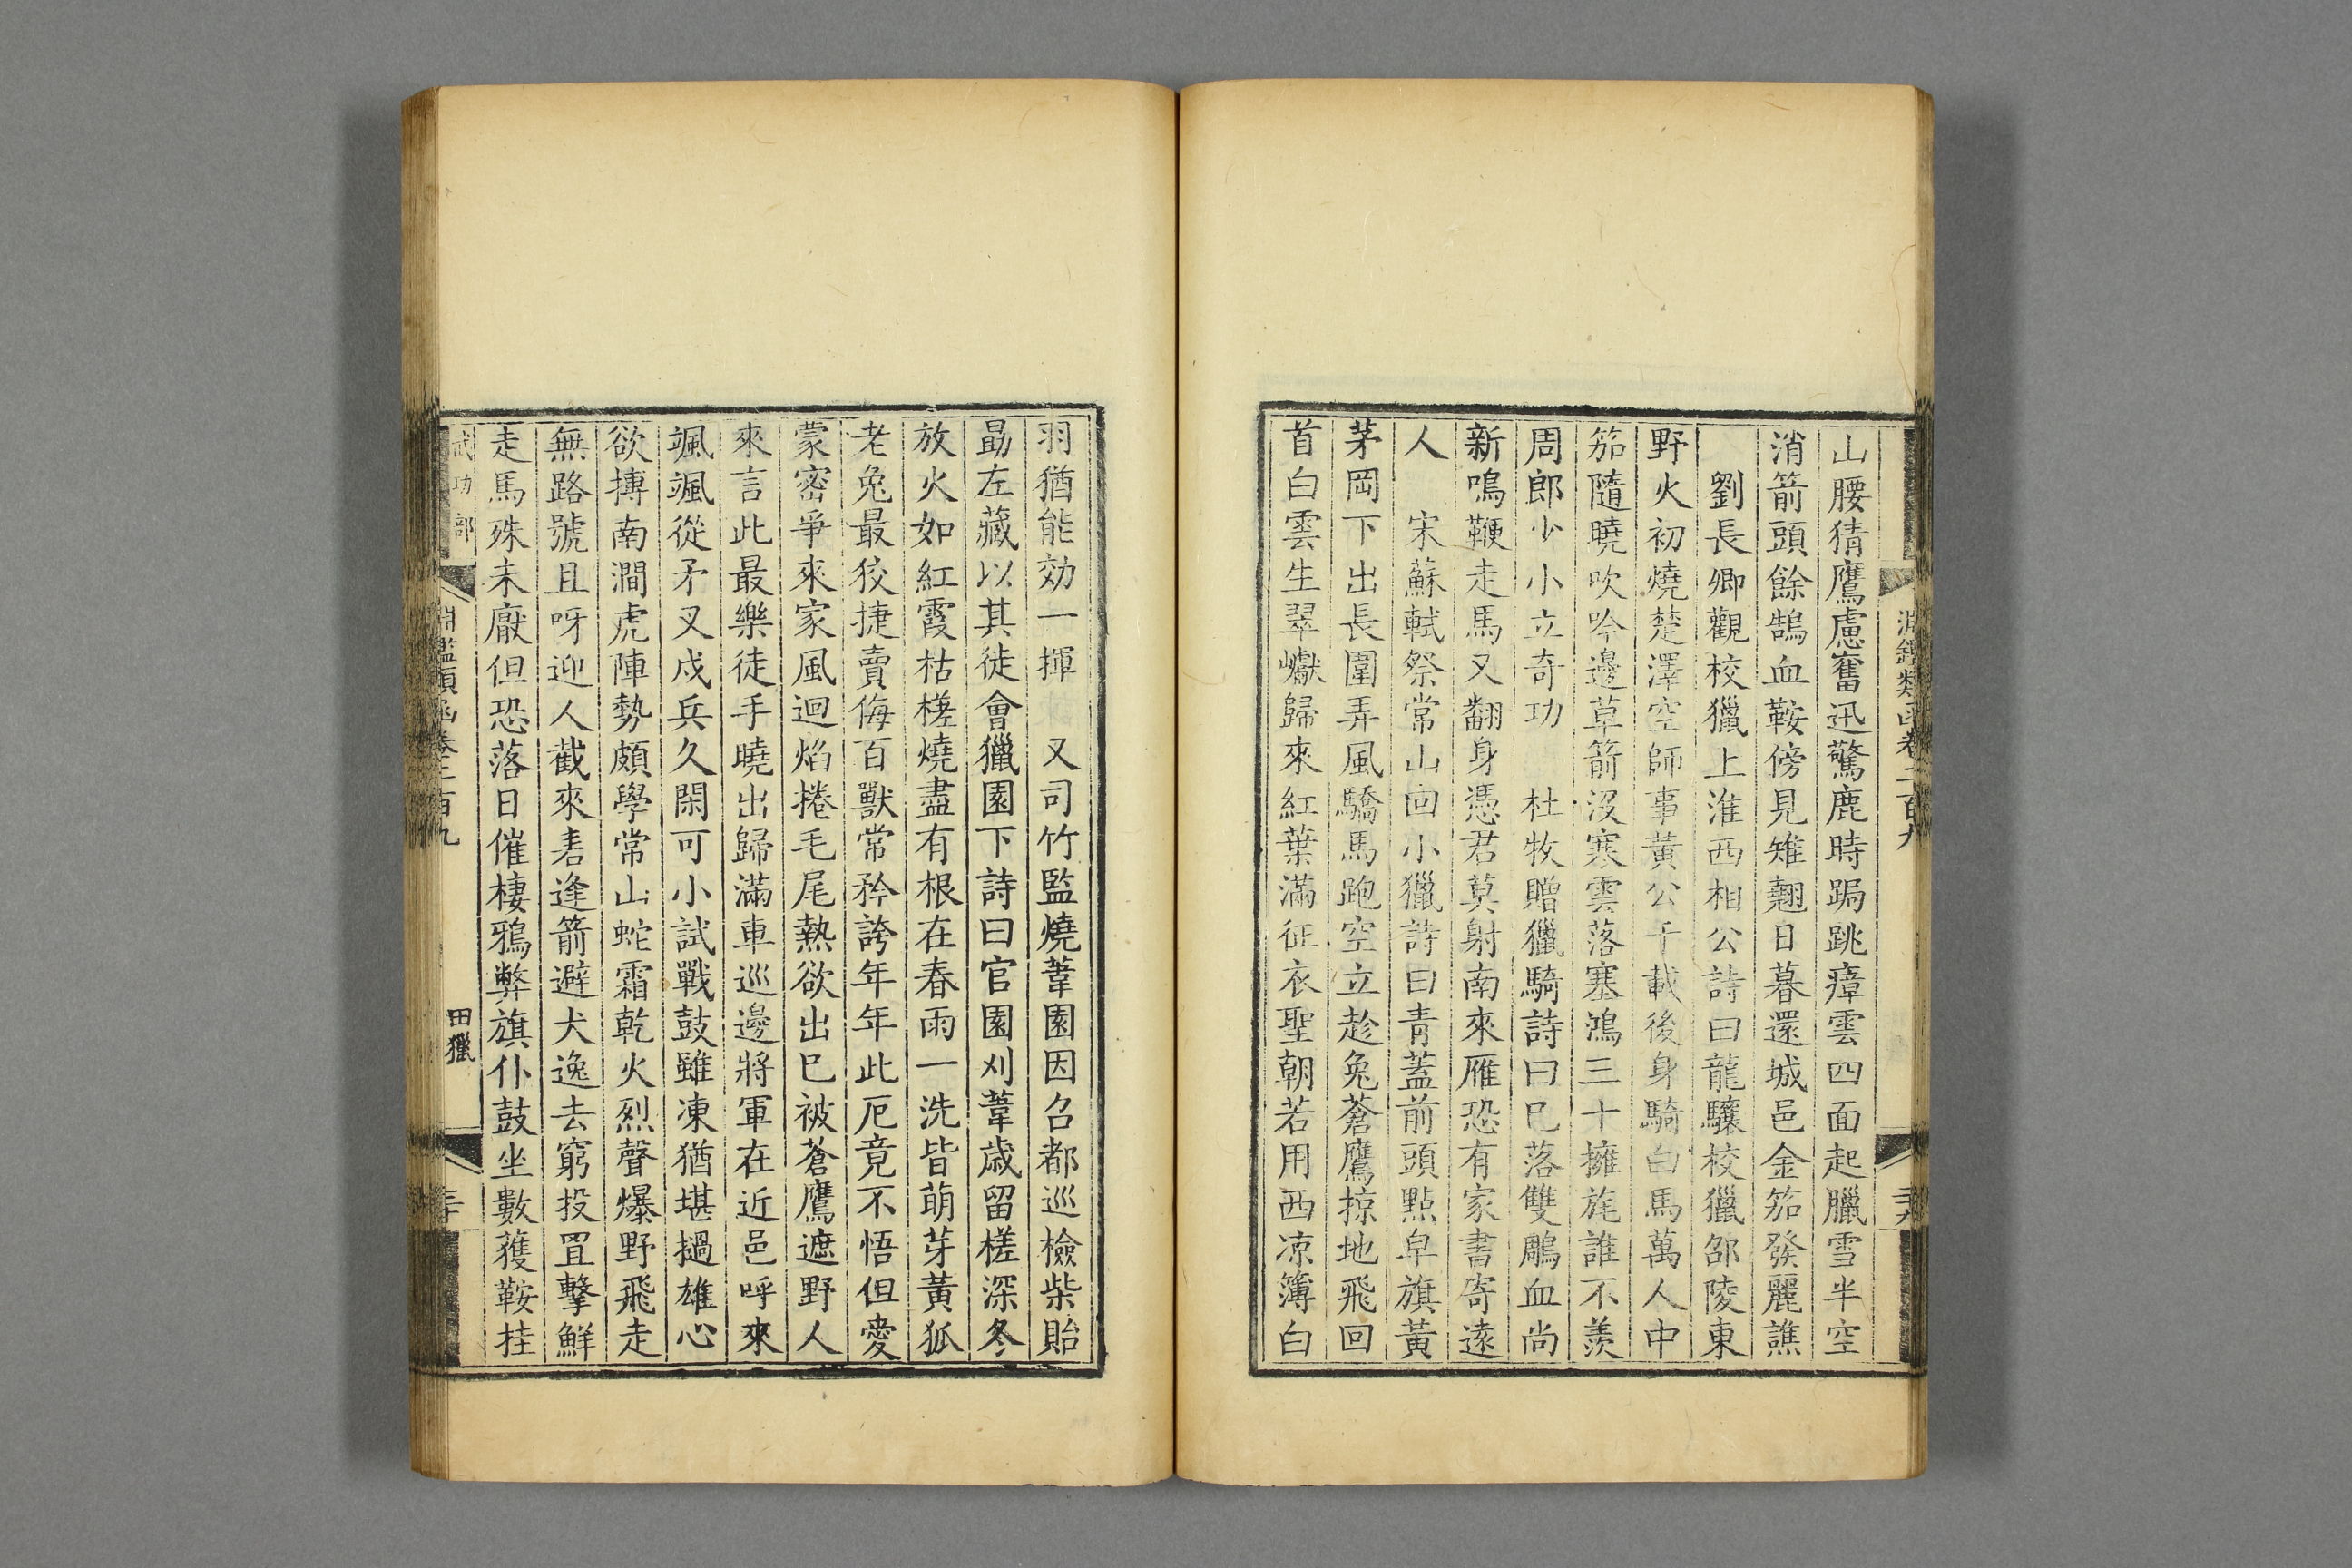 淵鑑類函卷二百九
山腰猜鷹慮奮迅驚鹿時跼跳瘴雲四面起臘雪半空
消箭頭餘鵠血鞍傍見雉翹日暮還城邑金笳發麗譙
劉長卿觀校獵上淮西相公詩曰龍驤校獵邵陵東
野火初燒楚澤空師事黃公千載後身騎白馬萬人中
笳隨曉吹吟邊草箭沒寒雲落塞鴻三十擁旄誰不羨
周郎少小立奇功 杜牧贈獵騎詩曰已落雙鵰血尚
新鳴鞭走馬又翻身憑君莫射南來雁恐有家書寄遠
人 宋蘇軾祭常山回小獵詩曰青蓋前頭點皁旗黃
茅岡下出長圍弄風驕馬跑空立趁兔蒼鷹掠地飛回
首白雲生翠巘歸來紅葉滿征衣聖朝若用西凉簿白
羽猶能効一揮 又司竹監燒葦園因召都巡檢柴貽
勗左藏以其徒會獵園下詩曰官園刈葦歲留槎深冬
放火如紅霞枯槎燒盡有根在春雨一洗皆萌芽黃狐
老兔最狡捷賣侮百獸常矜誇年年此厄竟不悟但愛
蒙密爭來家風迴焰捲毛尾熱欲出已被蒼鷹遮野人
來言此最樂徒手曉出歸滿車巡邊將軍在近邑呼來
颯颯從矛叉戍兵久閑可小試戰鼓雖凍猶堪撾雄心
欲搏南澗虎陣勢頗學常山蛇霜乾火烈聲爆野飛走
無路號且呀迎人截來砉逢箭避犬逸去窮投罝擊鮮
走馬殊未厭但恐落日催棲鴉弊旗仆鼓坐數獲鞍挂
武功部 淵鑑類函卷二百九 田獵 三十